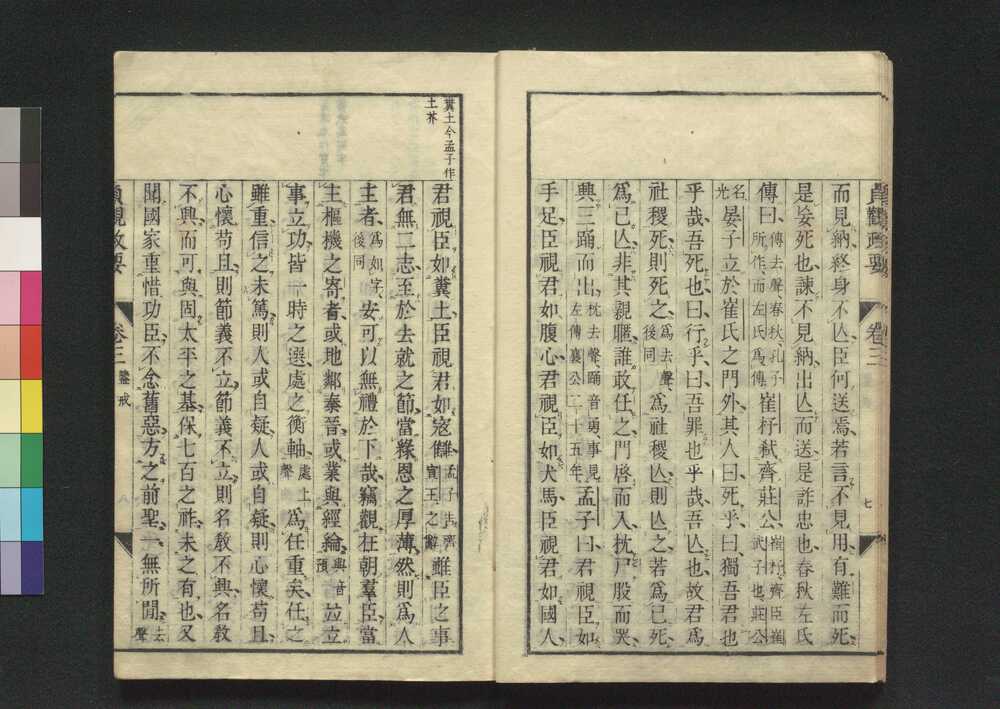 貞觀政要 卷三 七
而見納終身不亾臣何送焉若言不見用有難而死
是妄死也諫不見納出亾而送是詐忠也春秋左氏
傳曰傳去聲春秋孔子所作而左氏爲傳崔杼弑齊莊公崔杼齊臣崔武子也莊公
名光晏子立於崔氏之門外其人曰死乎曰獨吾君也
乎哉吾死也曰行乎曰吾罪也乎哉吾亾也故君爲
社稷死則死之爲去聲後同爲社稷亾則亾之若爲己死
爲己亾非其親暱誰敢任之門啓而入枕尸股而哭
興三踊而出枕去聲踊音勇事見左傳襄公二十五年孟子曰君視臣如
手足臣視君如腹心君視臣如犬馬臣視君如國人
糞土今孟子作
土芥
君視臣如糞土臣視君如寇讎孟子告齊宣王之辭雖臣之事
君無二志至於去就之節當緣恩之厚薄然則爲人
主者爲如字後同安可以無禮於下哉竊觀在朝羣臣當
主樞機之寄者或地鄰秦晉或業與經綸與音預竝立
事立功皆一時之選處之衡軸處上聲爲任重矣任之
雖重信之未篤則人或自疑人或自疑則心懷苟且
心懷苟且則節義不立節義不立則名敎不興名敎
不興而可與固太平之基保七百之祚未之有也又
聞國家重惜功臣不念舊惡方之前聖一無所閒去聲
貞觀政要 卷三 鑒戒 八